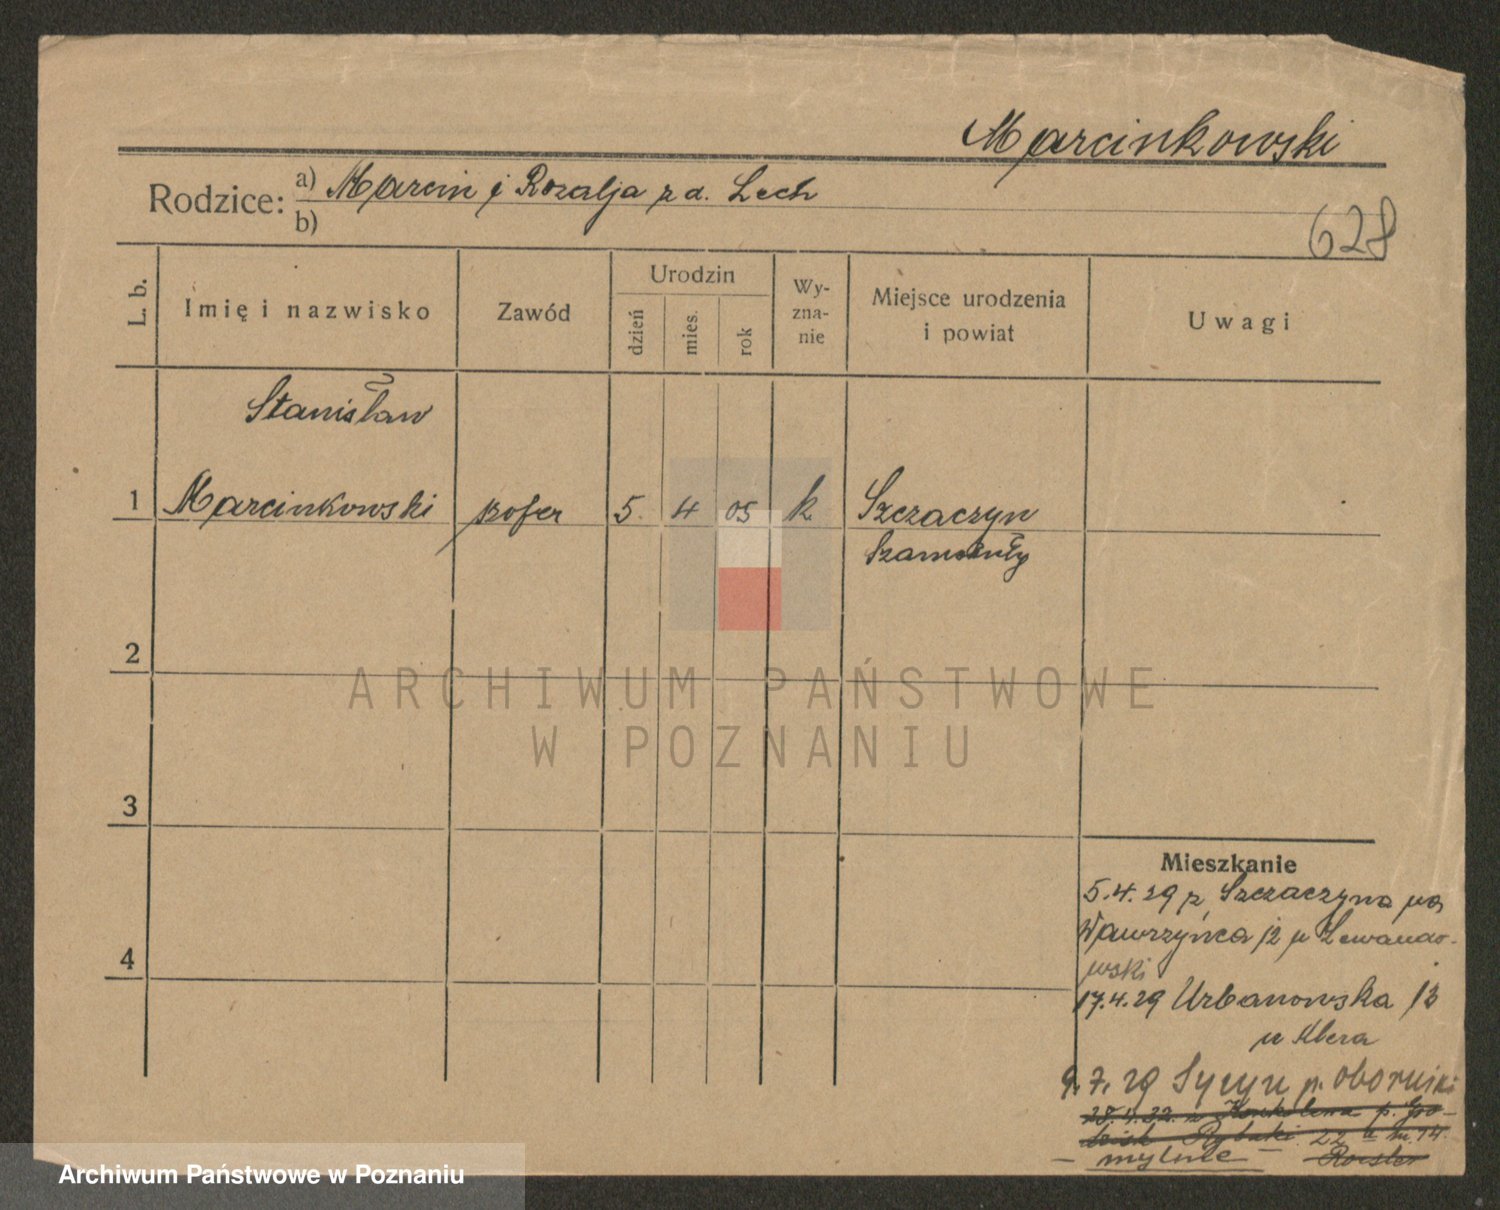 Marcinkowski
Rodzice: a) Marcin i Rozalja z d. Lech
b)
628
L. b.
Imię i nazwisko
Zawód
Urodzin
dzień
mies.
rok
Wy-
zna-
nie
Miejsce urodzenia
i powiat
Uwagi
Stanisław
1 Marcinkowski szofer 5 4 05 k Szczaczyn
Szamotuły
2
3
4
ARCHIWUM PAŃSTWOWE
W POZNANIU
Mieszkanie
5.4.29 z Szczaczyna na
Wawrzyńca 12 u Lewando-
wski
17.4.29 Urbanowska 13
u
9.7.29 Sycyn p. oborniki
28.4.32. z p. Gro-
dzisk Rybaki 22 14
mylnie
Archiwum Państwowe w Poznaniu